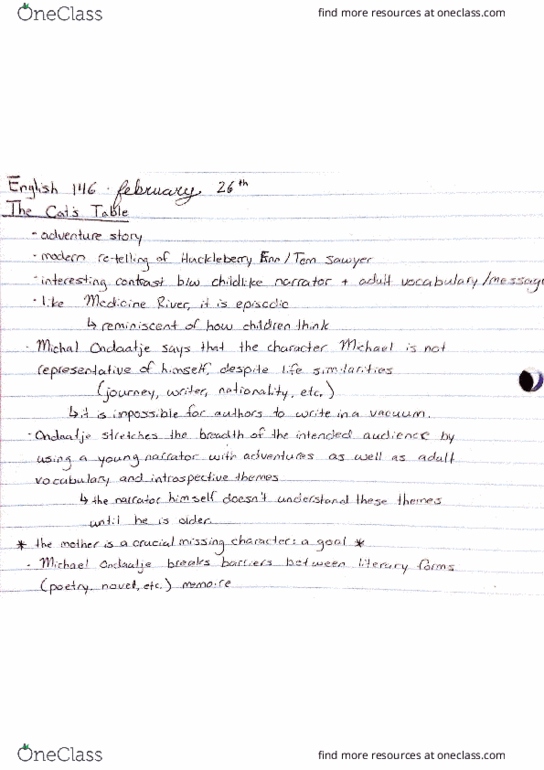 OneClass
find more resources at oneclass.com
English 146 · february 26th
The Cat's Table
- adventure story
- modern re-telling of Huckleberry Finn / Tom Sawyer
- interesting contrast b/w childlike narrator + adult vocabulary/message
- like Medicine River, it is episodic
↳ reminiscent of how children think
- Michal Ondaatje says that the character Michael is not
representative of himself, despite life similarities
(journey, writer, nationality, etc.)
↳ it is impossible for authors to write in a vacuum.
- Ondaatje stretches the breadth of the intended audience by
using a young narrator with adventures as well as adult
vocabulary and introspective themes
↳ the narrator himself doesn't understand these themes
until he is older.
* the mother is a crucial missing character: a goal *
- Michael Ondaatje breaks barriers between literary forms
(poetry, novel, etc.) memoire
OneClass
find more resources at oneclass.com